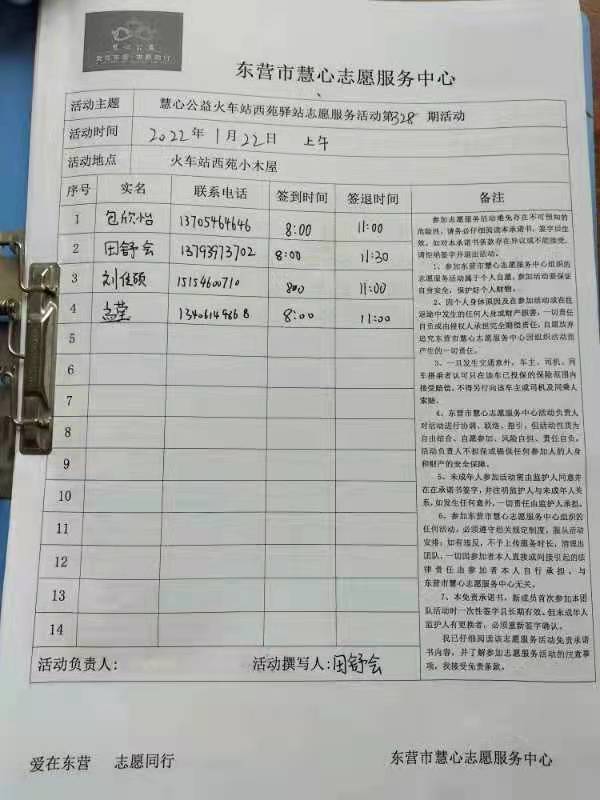 慧心公益
爱在东营·志愿同行
东营市慧心志愿服务中心
活动主题 慧心公益火车站西苑驿站志愿服务活动第328期活动
活动时间 2022年1月22日 上午
活动地点 火车站西苑小木屋
序号 实名 联系电话 签到时间 签退时间 备注
1 包欣怡 13705464646 8:00 11:00
2 田舒会 13793973702 8:00 11:30
3 刘佳颐 15154600710 8:00 11:00
4 孟莹 13406149868 8:00 11:00
5
6
7
8
9
10
11
12
13
14
参加志愿服务活动难免存在不可预知的
危险性，请务必仔细阅读本承诺书，签字后生
效。如对本承诺书条款存在异议或不能接受，
请拒绝签字并退出活动。
1、参加东营市慧心志愿服务中心组织的
志愿服务活动属于个人自愿。参加活动要保证
自身安全，保护好个人财物。
2、因个人身体原因及在参加活动或在往
返途中发生的任何人身或财产损害，一切责任
自负或由侵权人承担完全赔偿责任，自愿放弃
追究东营市慧心志愿服务中心因组织活动而
产生的一切责任。
3、一旦发生交通意外，车主、司机、同
车搭乘者认可只在该车已投保的保险范围内
接受赔偿，不得另行向该车主或司机及同乘人
索赔。
4、东营市慧心志愿服务中心活动负责人
对活动进行协调、联络、指引，但活动性质为
自由结合、自愿参加、风险自担、责任自负。
活动负责人不担保或确保任何参加人的人身
和财产的安全保障。
5、未成年人参加活动需由监护人同意并
在在承诺书签字，并注明监护人与未成年人关
系，如发生任何意外，一切责任由监护人承担。
6、参加东营市慧心志愿服务中心组织的
任何活动，必须遵守相关规定制度，服从活动
安排；如有违反，不予上传服务时长，清理出
团队。一切因参加者本人直接或间接引起的法
律责任由参加者本人自行承担，与
东营市慧心志愿服务中心无关。
7、本免责承诺书，新成员首次参加本团
队活动时一次性签字且长期有效。但未成年人
监护人有更换者，必须重新签字确认。
我已仔细阅读该志愿服务活动免责承诺
书内容，并了解参加志愿服务活动的注意事
项，我接受免责条款。
活动负责人： 活动撰写人：田舒会
爱在东营 志愿同行 东营市慧心志愿服务中心